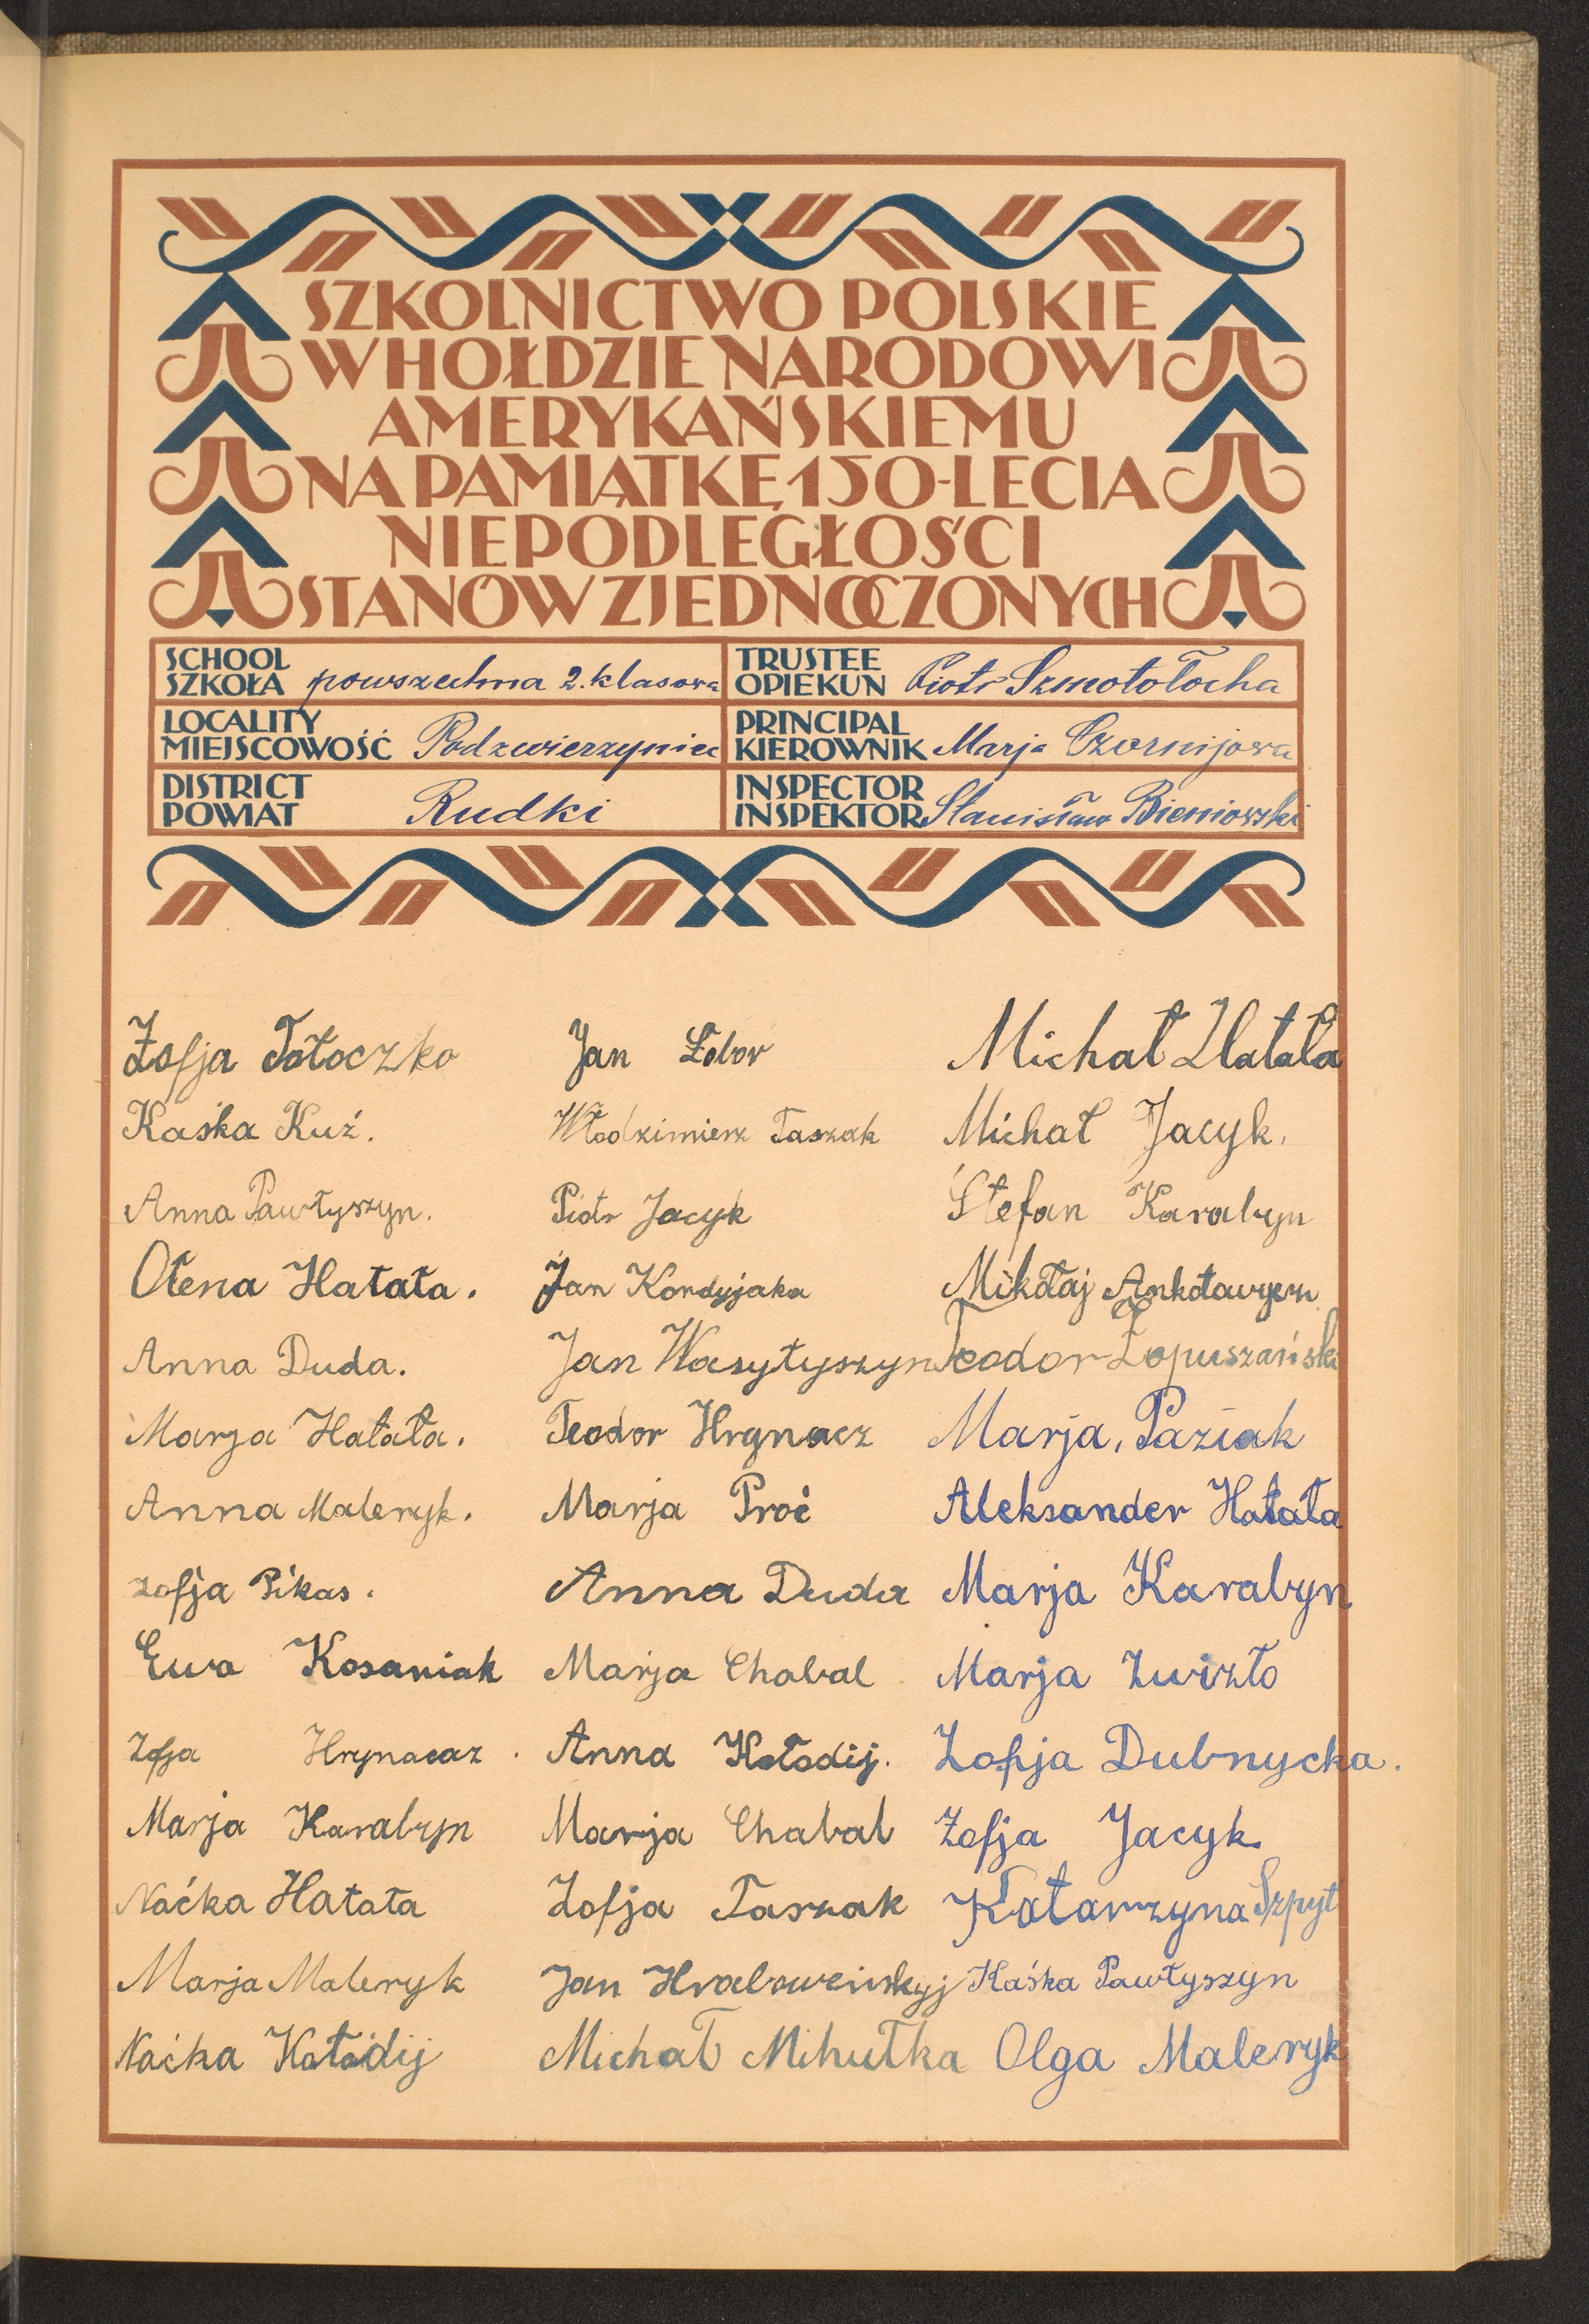 SZKOLNICTWO POLSKIE
W HOŁDZIE NARODOWI
AMERYKAŃSKIEMU
NA PAMIĄTKĘ 150-LECIA
NIEPODLEGŁOŚCI
STANÓW ZJEDNOCZONYCH
SCHOOL
SZKOŁA powszechna 2. klasowa
TRUSTEE
OPIEKUN Piotr Szmotołocha
LOCALITY
MIEJSCOWOŚĆ Podzwierzyniec
PRINCIPAL
KIEROWNIK Marja Czornijowa
DISTRICT
POWIAT Rudki
INSPECTOR
INSPEKTOR Stanisław Bieniowski
Zofja Tołoczko
Kaśka Kuź.
Anna Pawłyszyn.
Ołena Hatała.
Anna Duda.
Marja Hatała.
Anna Maleryk.
Zofja Pikas.
Ewa Kosaniak
Zofja Hrynacaz.
Marja Karabyn
Naćka Hatała
Marja Maleryk
Naćka Hołodij
Jan Łobor
Włodzimierz Taszak
Piotr Jacyk
Jan Kordyjaka
Jan Wasyłyszyn
Teodor Hrynacz
Marja Proć
Anna Duda
Marja Chabal
Anna Hołodij.
Marja Chabal
Zofja Taszak
Jan Hrabowenskyj
Michał Mihułka
Michał Hatała
Michał Jacyk.
Stefan Karabyn
Mikołaj
Teodor Łopuszański
Marja, Paziak
Aleksander Hatała
Marja Karabyn
Marja Zwizło
Zofija Dubnycka.
Zofja Jacyk.
Katarzyna Szpyt
Kaśka Pawłyszyn
Olga Maleryk